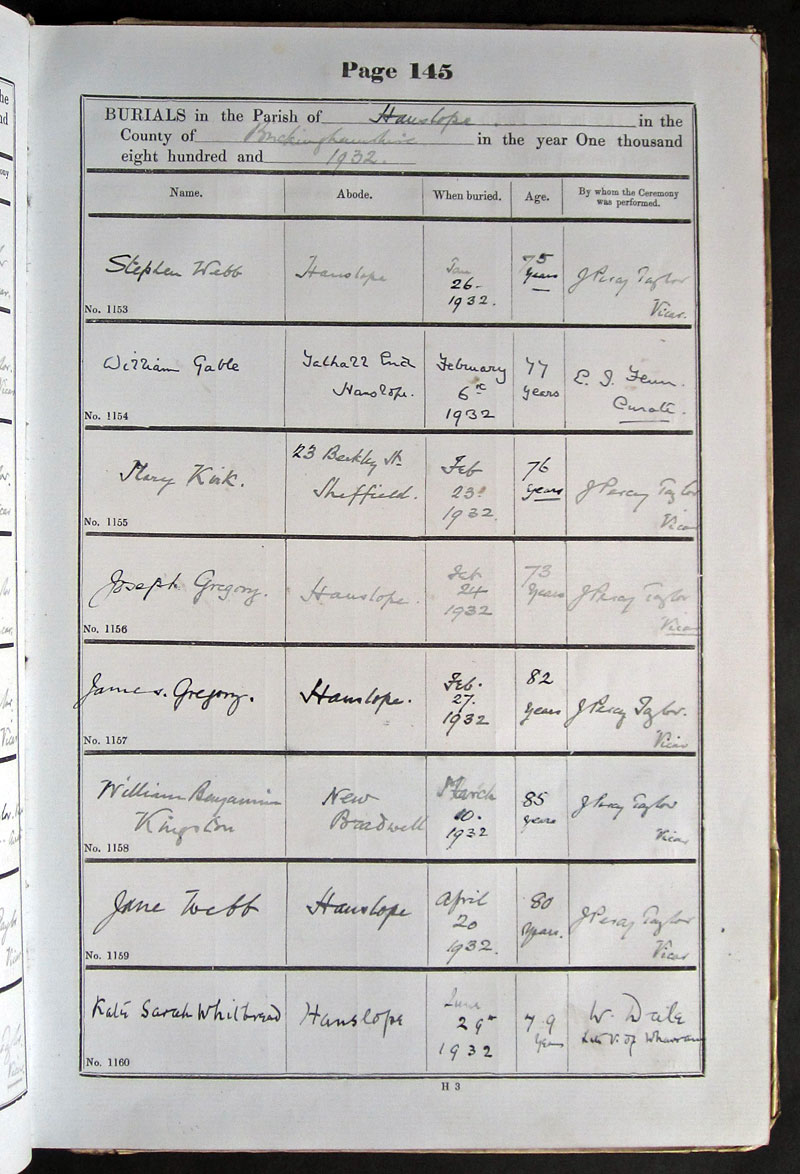 Page 145
BURIALS in the Parish of Hanslope in the
County of Buckinghamshire in the year One thousand
eight hundred and 1932.
Name. Abode. When buried. Age. By whom the Ceremony was performed.
Stephen Webb Hanslope Jan 26 1932. 75 Years J Percy Taylor Vicar.
No. 1153
William Gable Tathall End Hanslope. February 6th 1932 77 years E. J. Fenn. Curate.
No. 1154
Mary Kirk. 23 Berkley St. Sheffield. Feb 23 1932. 76 years J Percy Taylor Vicar
No. 1155
Joseph Gregory. Hanslope. Feb 24 1932 73 Years J Percy Taylor Vicar
No. 1156
James. Gregory. Hanslope. Feb. 27. 1932 82 years J Percy Taylor. Vicar
No. 1157
William Benjamin Kingston New Bradwell March 10. 1932 85 years J Percy Taylor Vicar
No. 1158
Jane Webb Hanslope April 20 1932. 80 Years. J Percy Taylor Vicar
No. 1159
Kate Sarah Whitbread Hanslope June 29th 1932 79 Years W. Dale late V. of
No. 1160
H 3